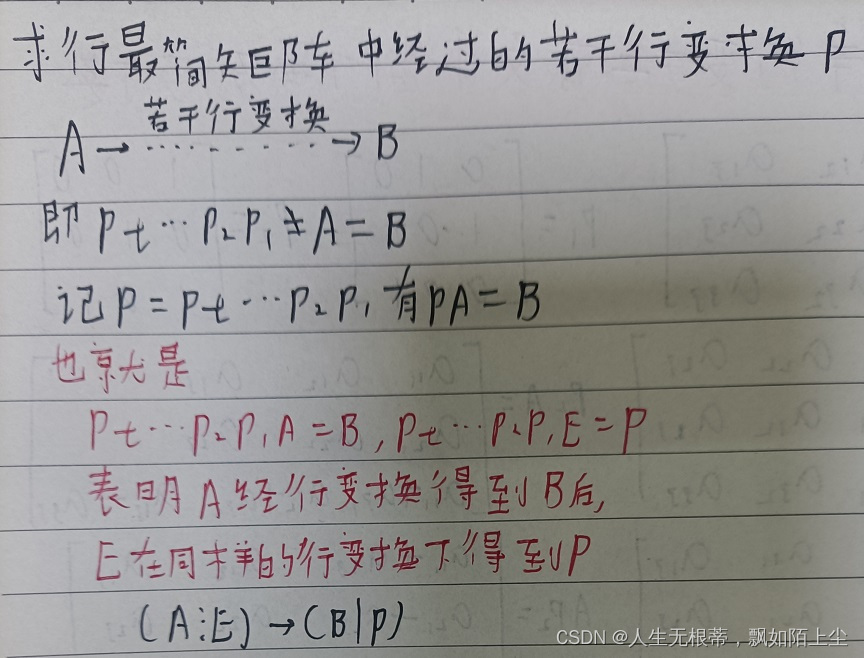 求行最简矩阵中经过的若干行变换P
若干行变换
A→·······→B
即 Pt…P₂P₁A=B
记P=Pt…P₂P₁有PA=B
也就是
Pt…P₂P₁A=B,Pt…P₂P₁E=P
表明A经行变换得到B后,
E在同样的行变换下得到P
(A⋮E)→(B|P)
CSDN @人生无根蒂，飘如陌上尘